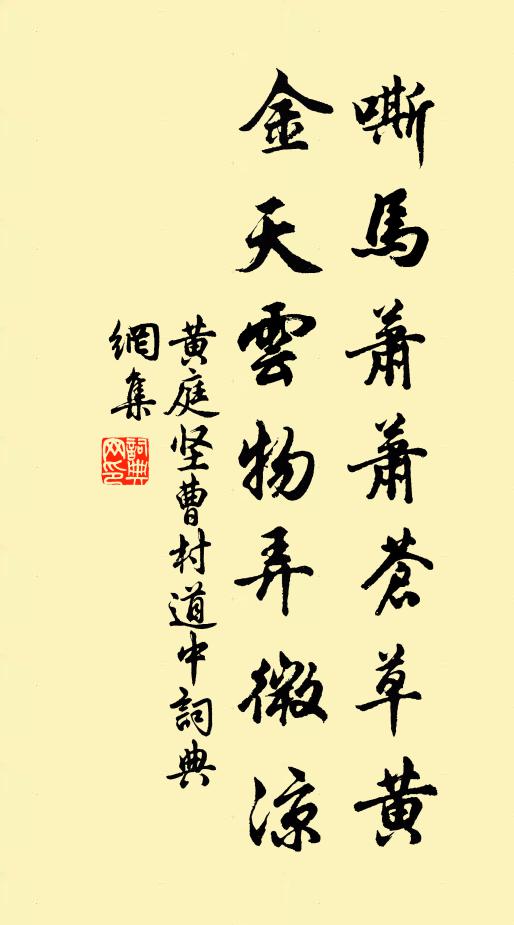 嘶馬蕭蕭蒼草黄
金天雲物弄微凉
黄庭坚曹村道中詞典
網集
詞典网印